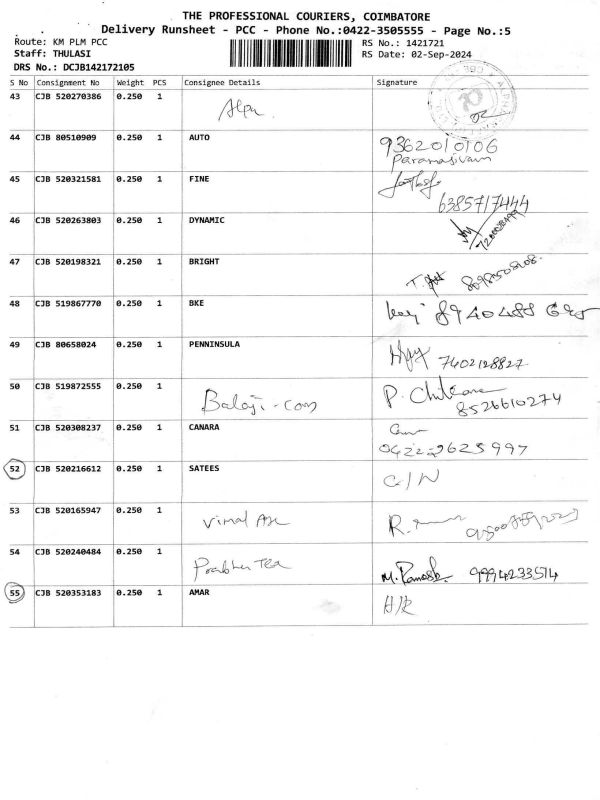 THE PROFESSIONAL COURIERS, COIMBATORE
Delivery Runsheet - PCC - Phone No.:0422-3505555 - Page No.:5
Route: KM PLM PCC RS No.: 1421721
Staff: THULASI RS Date: 02-Sep-2024
DRS No.: DCJB142172105
S No Consignment No Weight PCS Consignee Details Signature
43 CJB 520270386 0.250 1 Alpa
44 CJB 80510909 0.250 1 AUTO 9362010106
Paramasivam
45 CJB 520321581 0.250 1 FINE
6385717444
46 CJB 520263803 0.250 1 DYNAMIC
47 CJB 520198321 0.250 1 BRIGHT
48 CJB 519867770 0.250 1 BKE
49 CJB 80658024 0.250 1 PENNINSULA 7402128827
50 CJB 519872555 0.250 1 Balaji-com P.
8526610274
51 CJB 520308237 0.250 1 CANARA
0422-2623997
52 CJB 520216612 0.250 1 SATEES
53 CJB 520165947 0.250 1 Vimal R.
54 CJB 520240484 0.250 1 Prabhu Tea M. Ramesh. 9994233514
55 CJB 520353183 0.250 1 AMAR